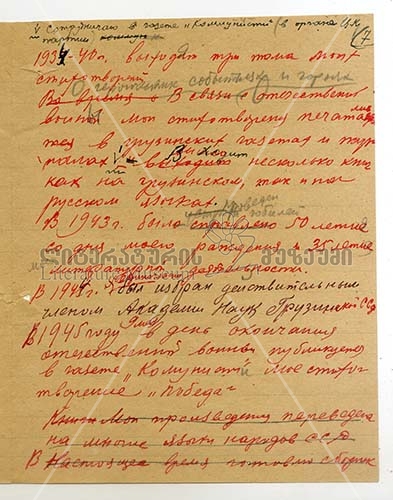 сотрудничаю в газете "Коммунисти" (в органе ЦК
партии)
7
1937-40г. выходят три тома моих
стихотворений
О героических событиях и героях
Во время о В связи с отечествен
войны мои стихотворения печатаю
тся в грузинских газетах и жур
налах и выходит несколько кни
ках на грузинском, так и на
русском языках.
проведен
юбилей
В 1943г. было справлено 50 летие
со дня моего рождения и 35 летие
литературной деятельности.
ლიტერატურის მუზეუმი
В 1944г. был избран действительным
членом Академии Наук Грузинской ССР
В 1945 году в день окончания
отечественной войны публикуется
в газете "Коммунисти" мое стихо
творение "Победа"
Книги Мои произведения переведены
на многие языки народов СССР
В Настоящее время готовлю сборник